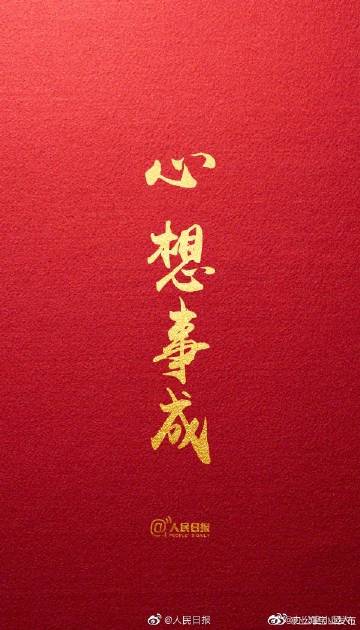 心想事成
@人民日报
PEOPLE'S DAILY
@人民日报